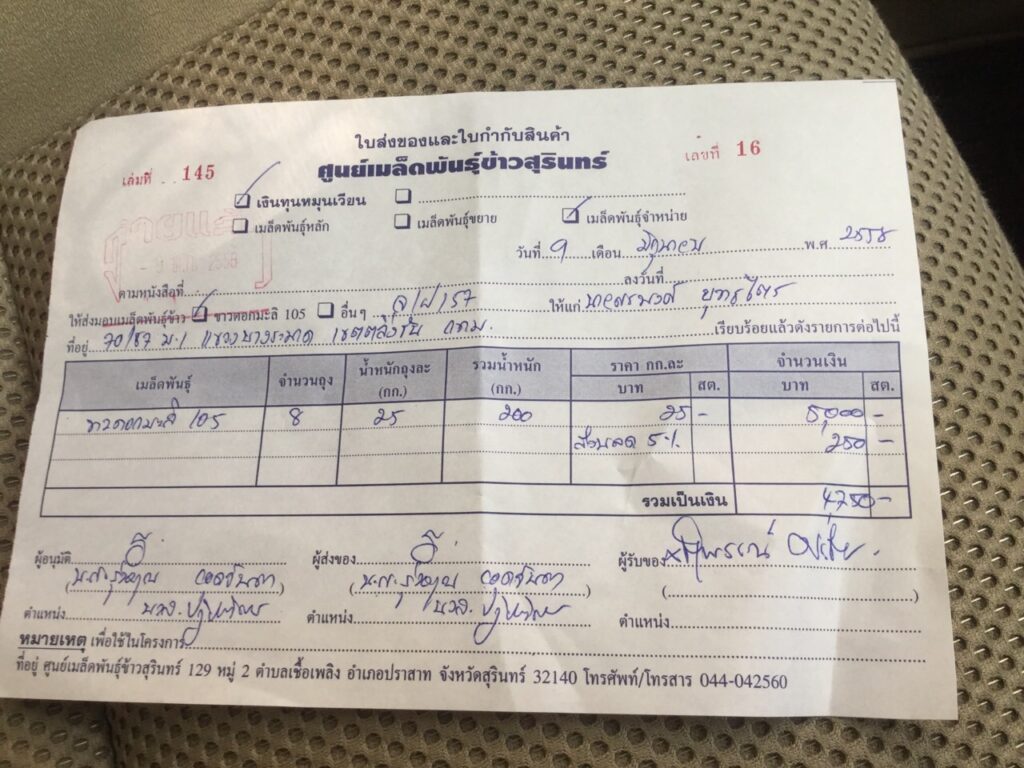 ใบส่งของและใบกำกับสินค้า
เล่มที่ 145 ศูนย์เมล็ดพันธุ์ข้าวสุรินทร์ เลขที่ 16
เงินทุนหมุนเวียน
เมล็ดพันธุ์หลัก เมล็ดพันธุ์ขยาย เมล็ดพันธุ์จำหน่าย
วันที่ 9 เดือน มิถุนายน พ.ศ 2558
ตามหนังสือที่ ลงวันที่
ให้ส่งมอบเมล็ดพันธุ์ข้าว ขาวดอกมะลิ 105 อื่นๆ ให้แก่
ที่อยู่ 70/87 ม.1 แขวงบางระมาด เขตตลิ่งชัน กทม. เรียบร้อยแล้วดังรายการต่อไปนี้
เมล็ดพันธุ์ จำนวนถุง น้ำหนักถุงละ (กก.) รวมน้ำหนัก (กก.) ราคา กก.ละ จำนวนเงิน
บาท สต. บาท สต.
ขาวดอกมะลิ 105 8 25 200 25 - 5,000 -
ส่วนลด 5% 250 -
รวมเป็นเงิน 4,750 -
ผู้อนุมัติ ผู้ส่งของ ผู้รับของ
ตำแหน่ง ตำแหน่ง ตำแหน่ง
หมายเหตุ เพื่อใช้ในโครงการ
ที่อยู่ ศูนย์เมล็ดพันธุ์ข้าวสุรินทร์ 129 หมู่ 2 ตำบลเชื้อเพลิง อำเภอปราสาท จังหวัดสุรินทร์ 32140 โทรศัพท์/โทรสาร 044-042560